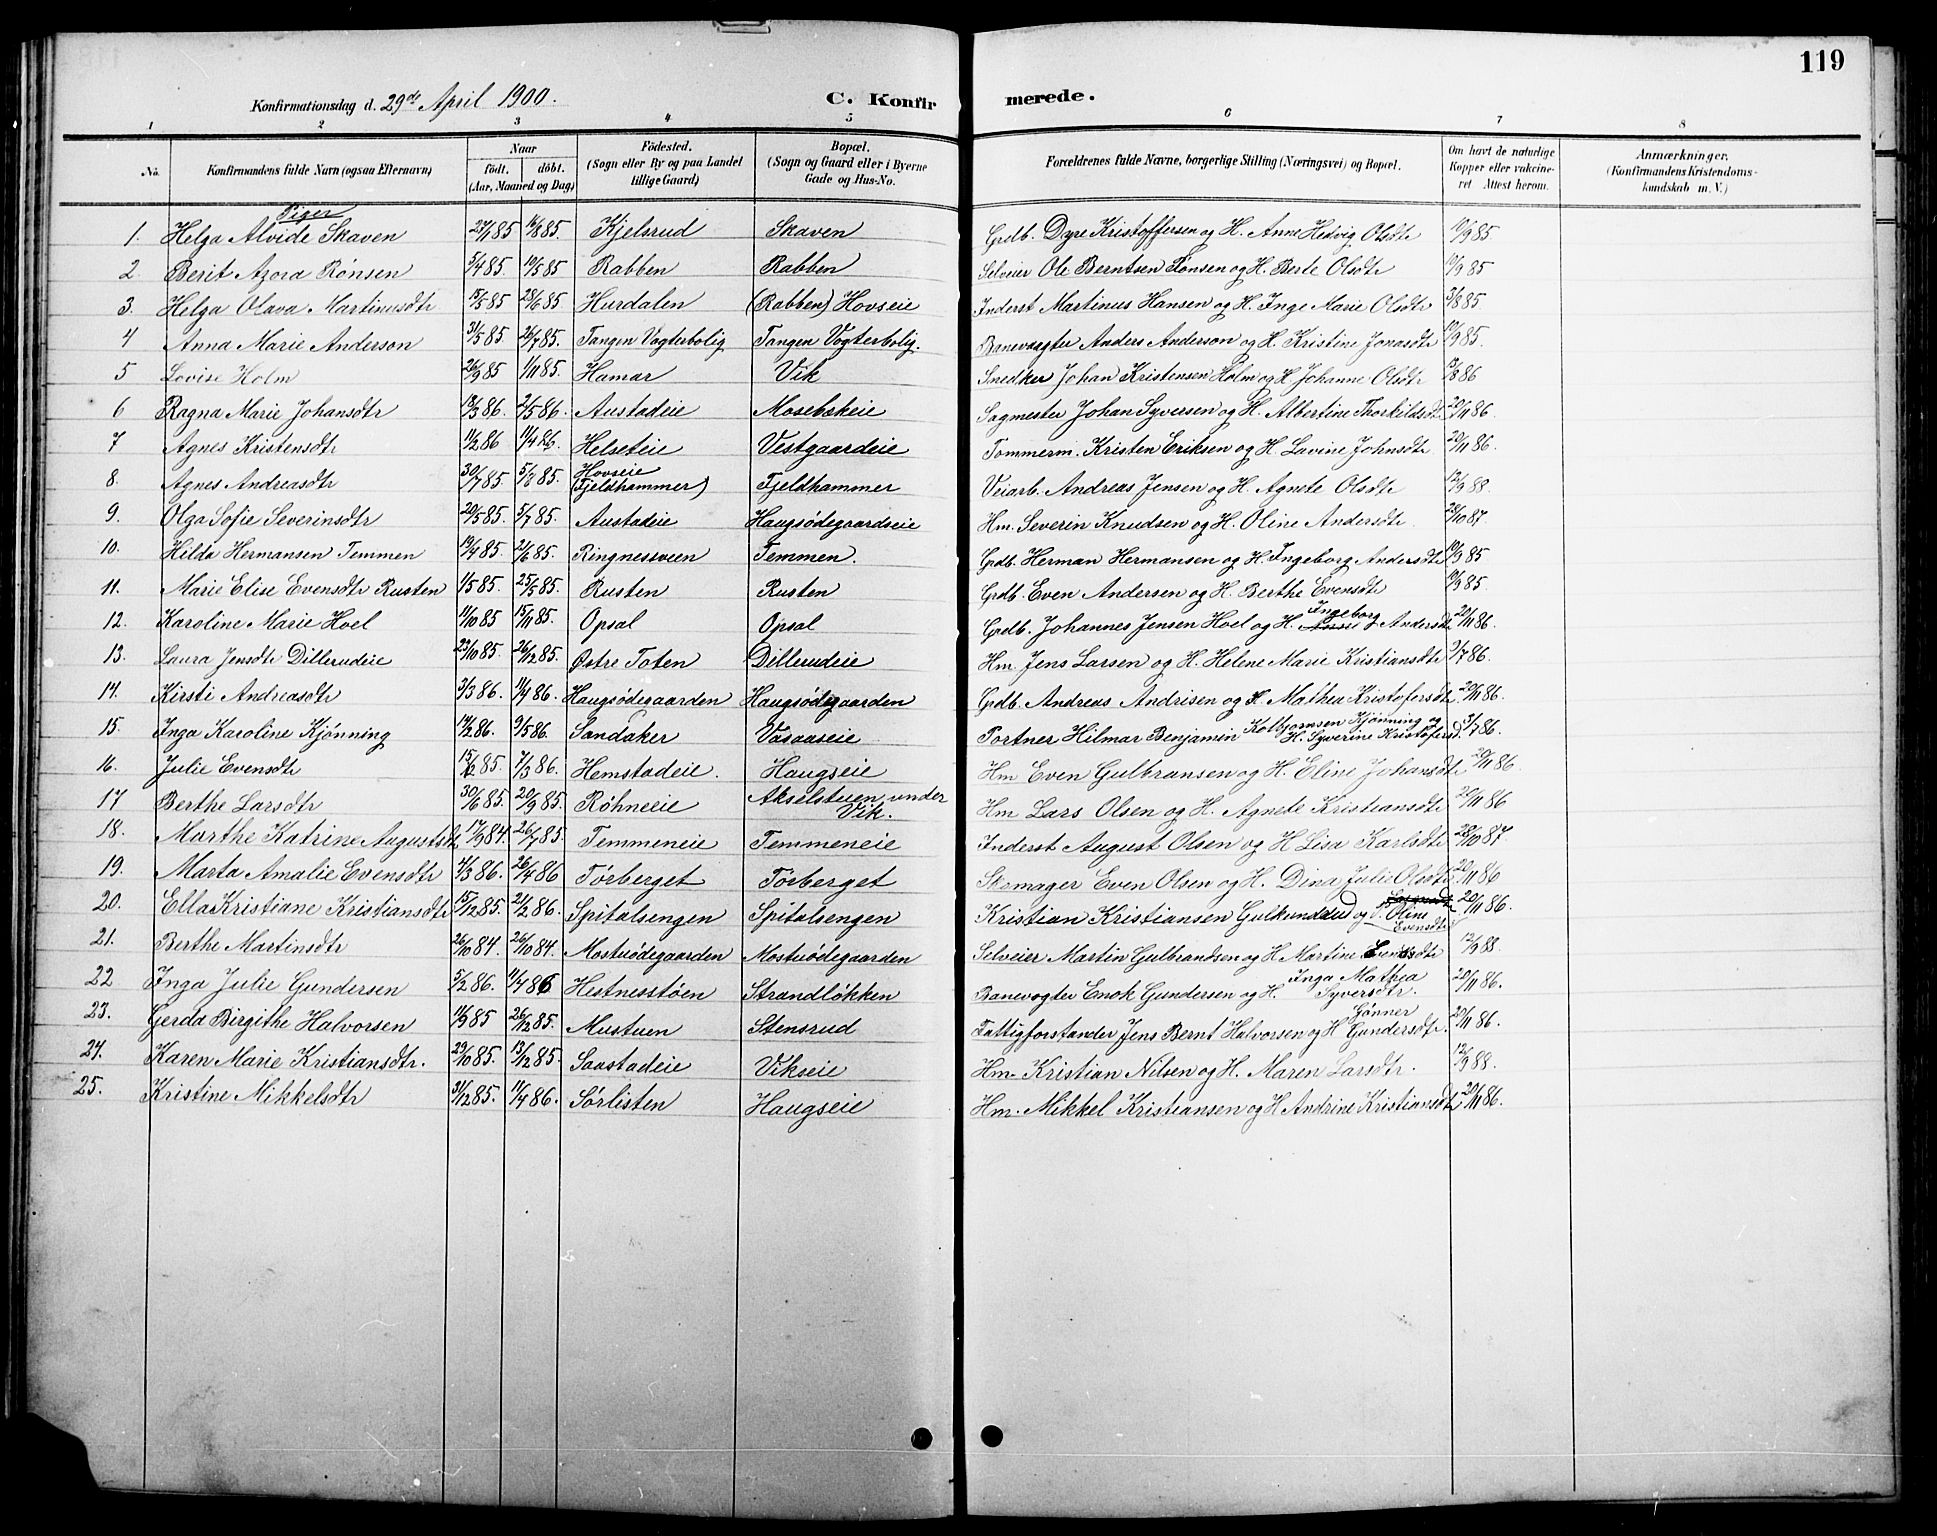 119
Konfirmationsdag d. 29de April 1900.
C. Konfirmerede.
1 2 3 4 5 6 7 8
No. Konfirmandens fulde Navn (ogsaa Efternavn) Naar födt. döbt. (Aar, Maaned og Dag) Födested. (Sogn eller By og paa Landet tillige Gaard) Bopæl. (Sogn og Gaard eller i Byerne Gade og Hus-No. Forældrenes fulde Navne, borgerlige Stilling (Næringsvei) og Bopæl. Om havt de naturlige Kopper eller vakcineret Attest herom. Anmærkninger. (Konfirmandens Kristendomskundskab m. V.)
Piger
1. Helga Alvide Skaven 27/1 85 16/8 85. Kjelsrud Skaven Grdb. Dyre Kristoffersen og H. Anne Hedvig Olsdtr 10/9 85
2. Berit Azora Rønsen 5/4 85. 10/5 85 Rabben Rabben Selveier Ole Berntsen Rønsen og H. Berte Olsdtr 10/9 85
3. Helga Olava Martinusdtr 15/5 85 28/6 85. Hurdalen (Rabben) Hovseie Inderst Martinus Hansen og H. Inge Marie Olsdtr 3/8 85.
4 Anna Marie Anderson 31/5 85. 26/7 85. Tangen Vogterbolig Tangen Vogterbolig. Banevogter Anders Anderson og H. Kristine Jonasdtr 10/9 85.
5 Lovise Holm 26/9 85 1/11 85. Hamar Vik Snedker Johan Kristensen Holm og H Johanne Olsdtr 13/8 86
6 Ragna Marie Johansdtr 18/3 86. 2/5 86. Austadeie Mosebækeie Sagmester Johan Syversen og H. Albertine Thorkildsd. 20/11 86.
7 Agnes Kristensdtr 11/2 86 11/4 86. Helseteie Vestgaardeie Tømmerm. Kristen Eriksen og H. Lavine Johnsdtr 20/11 86.
8. Agnes Andreasdtr 30/7 85. 5/8 85. Hovseie (Fjeldhammer) Fjeldhammer Veiarb. Andreas Jensen og H. Agnete Olsdtr 12/9 88.
9. Olga Sofie Severinsdtr 20/5 85. 5/7 85. Austadeie Haugsødegaardseie Hm. Severin Knudsen og H. Oline Andersdtr. 28/10 87.
10. Hilda Hermansen Temmen 19/4 85. 21/6 85. Ringnessveen Temmen. Grdb. Herman Hermansen og H. Ingeborg Andersdtr 10/9 85
11. Marie Elise Evensdtr Rusten 1/5 85. 25/5 85. Rusten Rusten Grdb. Even Andersen og H. Berthe Evensdtr 10/9 85.
12. Karoline Marie Hoel 11/10 85 15/11 85. Opsal Opsal Grdb. Johannes Jensen Hoel og H. Ingeborg Andersdtr 20/11 86.
13. Laura Jensdtr Dillerudeie 23/10 85. 26/12 85. Østre Toten Dillerudeie Hm. Jens Larsen og H. Helene Marie Kristiansdtr 3/7 86.
14. Kirsti Andreasdtr 3/3 86. 11/4 86. Haugsødegaarden Haugsødegaarden Grdb. Andreas Andrisen og H. Mathea Kristofersdtr 20/11 86.
15. Inga Karoline Kjønning 14/2 86. 9/5 86. Sandaker Vasaaseie Portner Hilmar Benjamin Kolbjørnsen Kjønning og H. Syverine Kristofersd. 3/7 86.
16. Julie Evensdtr 15/12 85. 7/3 86. Hemstadeie. Haugseie Hm Even Gulbransen og H. Eline Johansdtr 20/11 86.
17 Berthe Larsdtr 30/6 85. 20/9 85. Røhneeie Akselstuen under Vik. Hm Lars Olsen og H. Agnete Kristiansdtr 20/11 86
18. Marthe Katrine Augustsdtr 17/9 84. 26/7 85. Temmeneie Temmeneie Inderst August Olsen og H Lisa Karlsdtr 28/10 87.
19. Marta Amalie Evensdtr 4/3 86. 26/4 86 Tørberget Tørberget Skomager Even Olsen og H. Dina Julie Olsdtr 20/11 86
20. Ella Kristiane Kristiansdtr 15/12 85. 21/2 86. Spitalsengen Spitalsengen Kristian Kristiansen Gulkundrud og Oline Evensdtr 20/11 86.
21. Berthe Martinsdtr 26/10 84. 26/10 84. Mostuødegaarden Mostuødegaarden Selveier Martin Gulbrandsen og H Martine Evensdtr 12/9 88.
22 Inga Julie Gundersen 5/2 86. 11/4 86 Hestnesstøen Strandløkken Banevogter Enok Gundersen og H. Inga Mathea Syversdtr. 20/11 86.
23. Gerda Birgithe Halvorsen 11/9 85 26/12 85. Mustuen Stensrud Fattigforstander Jens Bernt Halvorsen og H Gønner Gundersdtr. 20/11 86.
24. Karen Marie Kristiansdtr. 29/10 85. 13/12 85. Saastadeie Vikseie Hm- Kristian Nilsen og H. Maren Larsdtr. 12/9 88.
25. Kristine Mikkelsdtr 31/12 85. 11/4 86. Sørlisten Haugseie Hm. Mikkel Kristiansen og H Andrine Kristiansdtr 20/11 86.